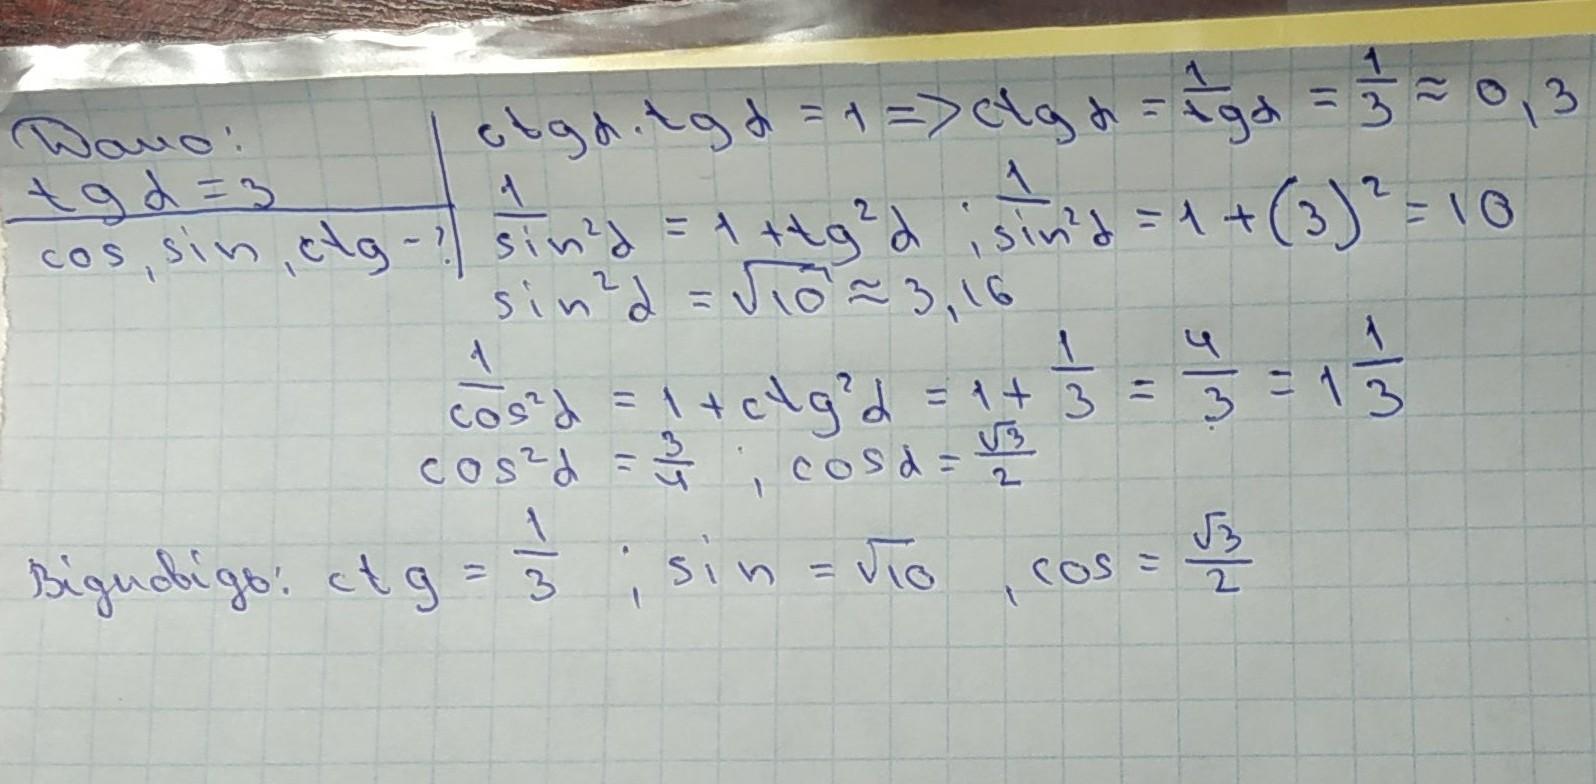 Дано:
tg α = 3
cos, sin, ctg - ?
ctg α · tg α = 1 => ctg α = 1/tg α = 1/3 ≈ 0,3
1/sin²α = 1 + tg²α ; 1/sin²α = 1 + (3)² = 10
sin²α = √10 ≈ 3,16
1/cos²α = 1 + ctg²α = 1 + 1/3 = 4/3 = 1 1/3
cos²α = 3/4 ; cos α = √3/2
Відповідь: ctg = 1/3 ; sin = √10 , cos = √3/2